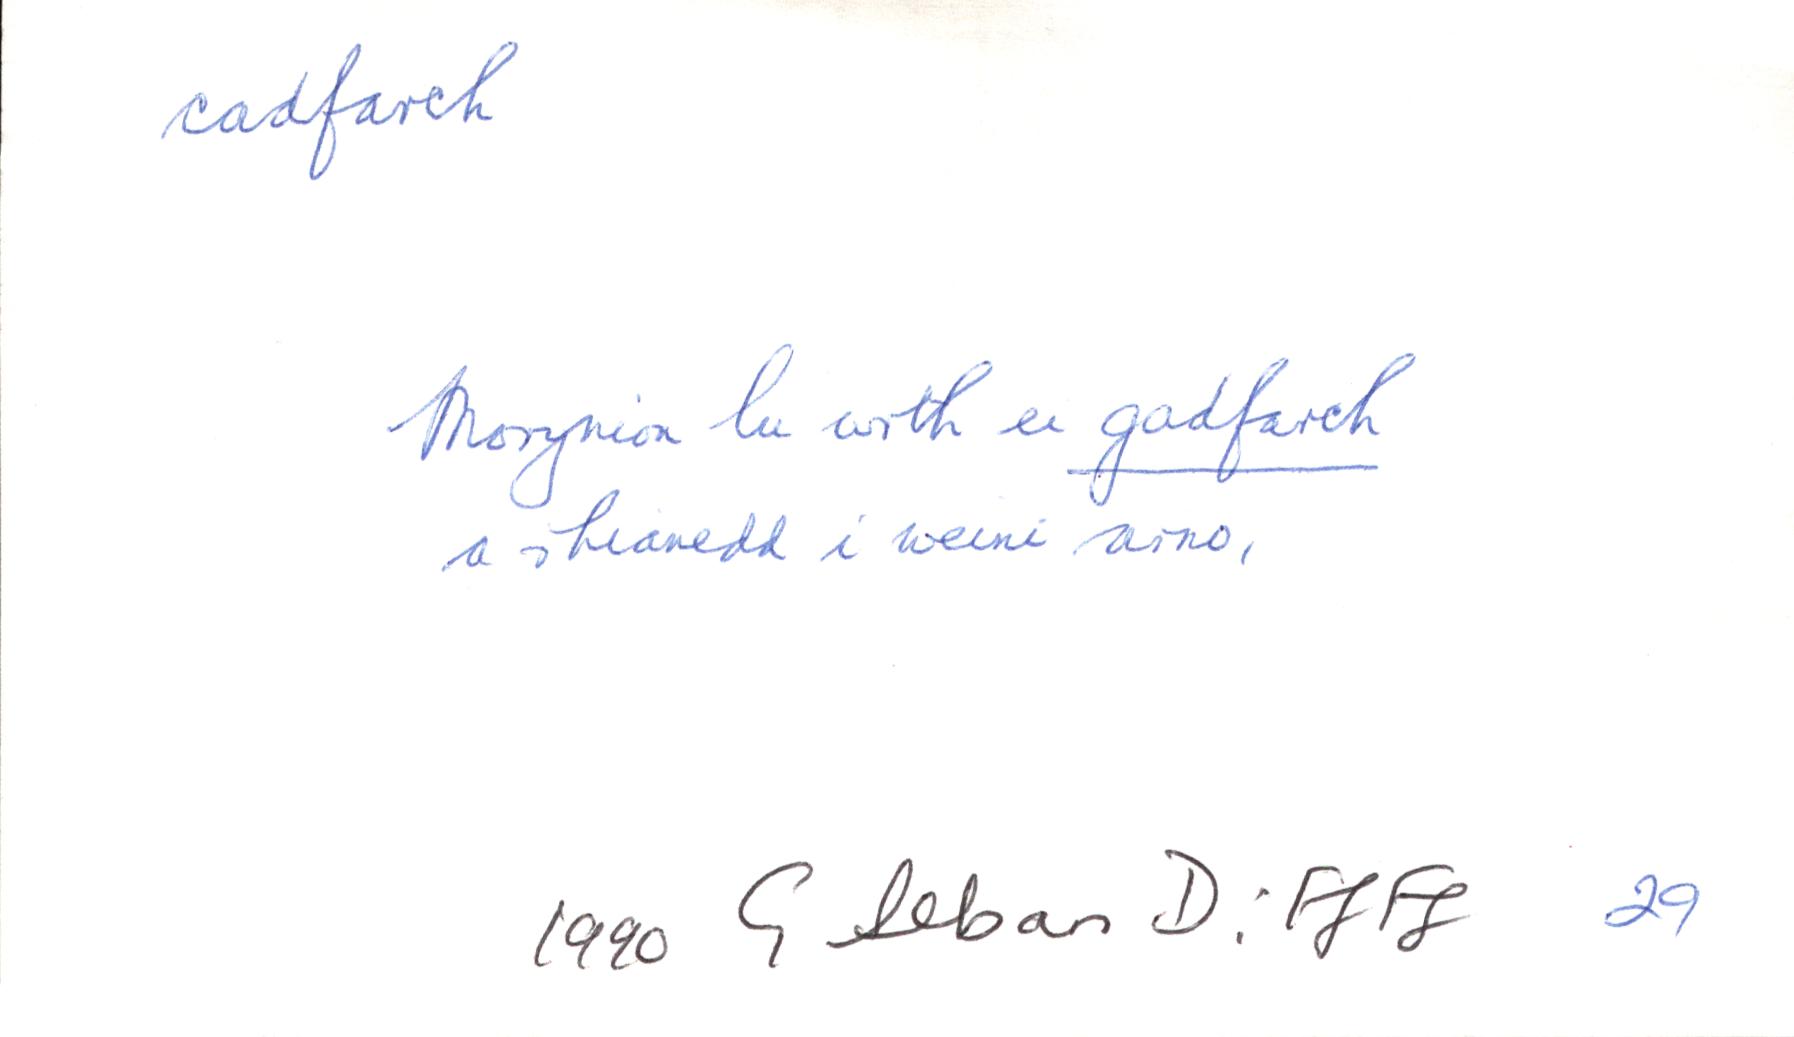 cadfarch
Morynion lu wrth eu gadfarch
a rhianedd i weini arno,
1990 G D: FfFf 29